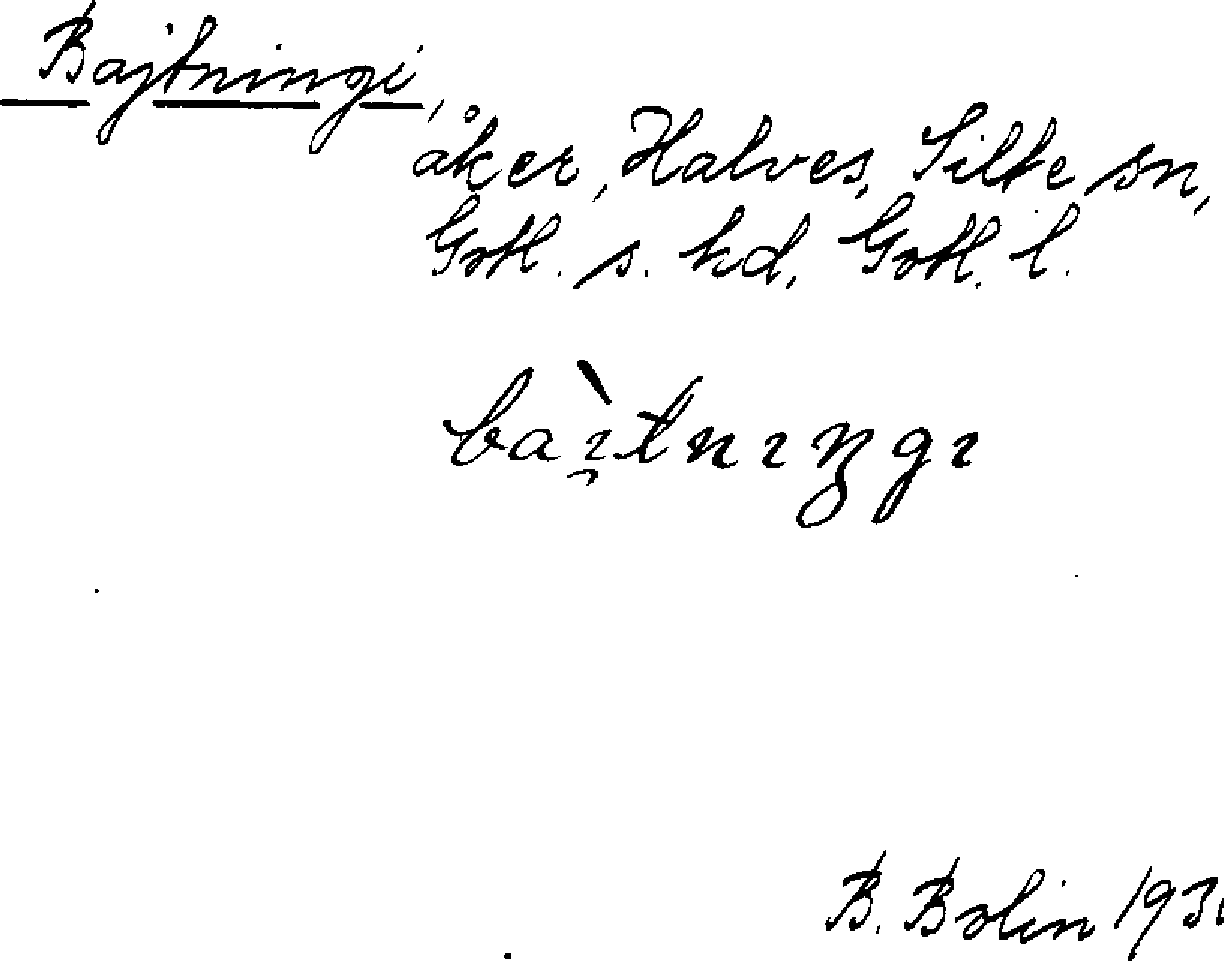 Bajtningi,
åker, Halves, Silte sn,
Gotl. s. hd, Gotl. l.
baì̯tnıŋgı
B. Bolin